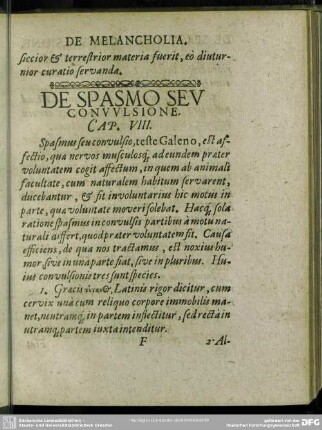 DE MELANCHOLIA.
siccior & terrestrior materia fuerit, eò diutur-
nior curatio servanda.
DE SPASMO SEV
CONVVLSIONE.
CAP. VIII.
Spasmus seu convulsio, teste Galeno, est af-
fectio, qua nervos musculosq; ad eundem præter
voluntatem cogit affectum, in quem ab animali
facultate, cum naturalem habitum servarent,
ducebantur, & fit involuntarius hic motus in
parte, qua voluntate moveri solebat. Hacq; sola
ratione spasmus in convulsis partibus à motu na-
turali differt, quod præter voluntatem sit. Causa
efficiens, de qua nos tractamus, est noxius hu-
mor, sive in una parte fiat, sive in pluribus. Hu-
ius convulsionis tres sunt species.
1. Græcis Latinis rigor dicitur, cum
cervix unà cum reliquo corpore immobilis ma-
net, neutramq; in partem inflectitur, sed rectà in
utramq; partem iuxta intenditur.
F 2. Al-